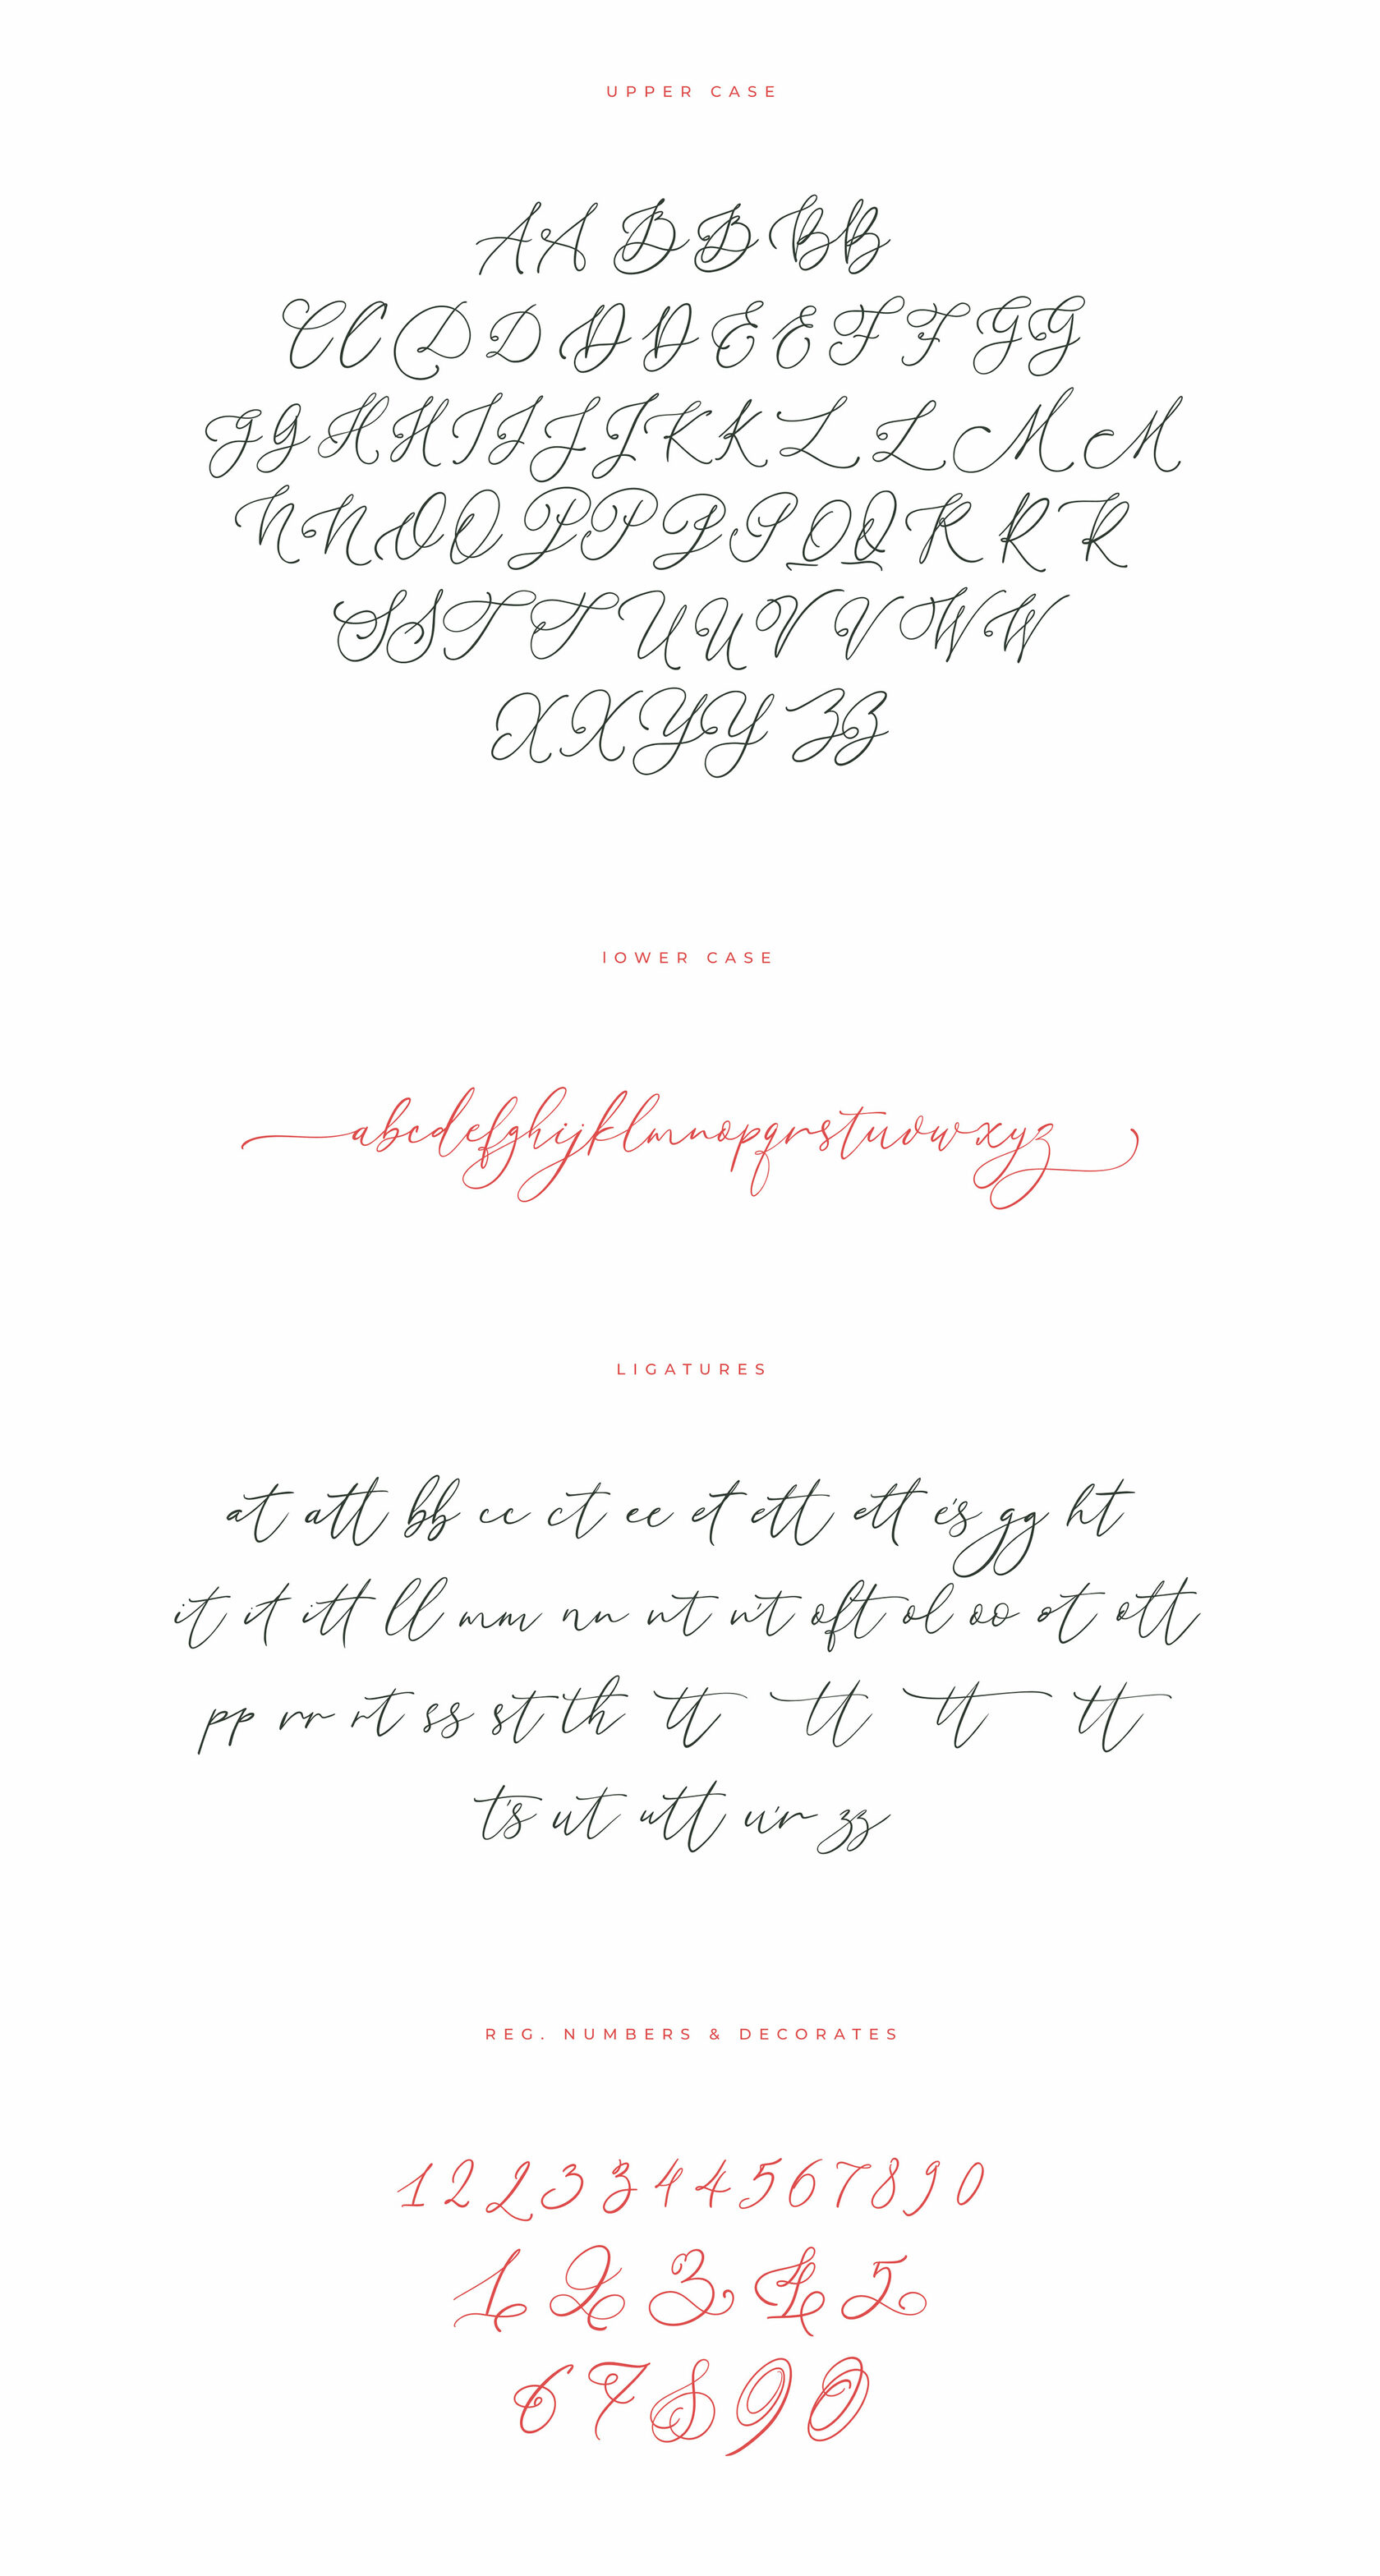 UPPER CASE
A A B B B B
C C D D D D E E F F G G
G G H H I I J J K K L L M M
N N O O P P P P Q Q R R R
S S T T U U V V W W
X X Y Y Z Z
lOWER CASE
abcdefghijklmnopqrstuvwxyz
LIGATURES
at att bb cc ct ee et ett ett e's gg ht
it it itt ll mm nn nt n't oft ol oo ot ott
pp rr rt ss st th tt tt tt tt
t's ut utt u'r zz
REG. NUMBERS & DECORATES
1 2 2 3 3 4 4 5 6 7 8 9 0
1 2 3 4 5
6 7 8 9 0